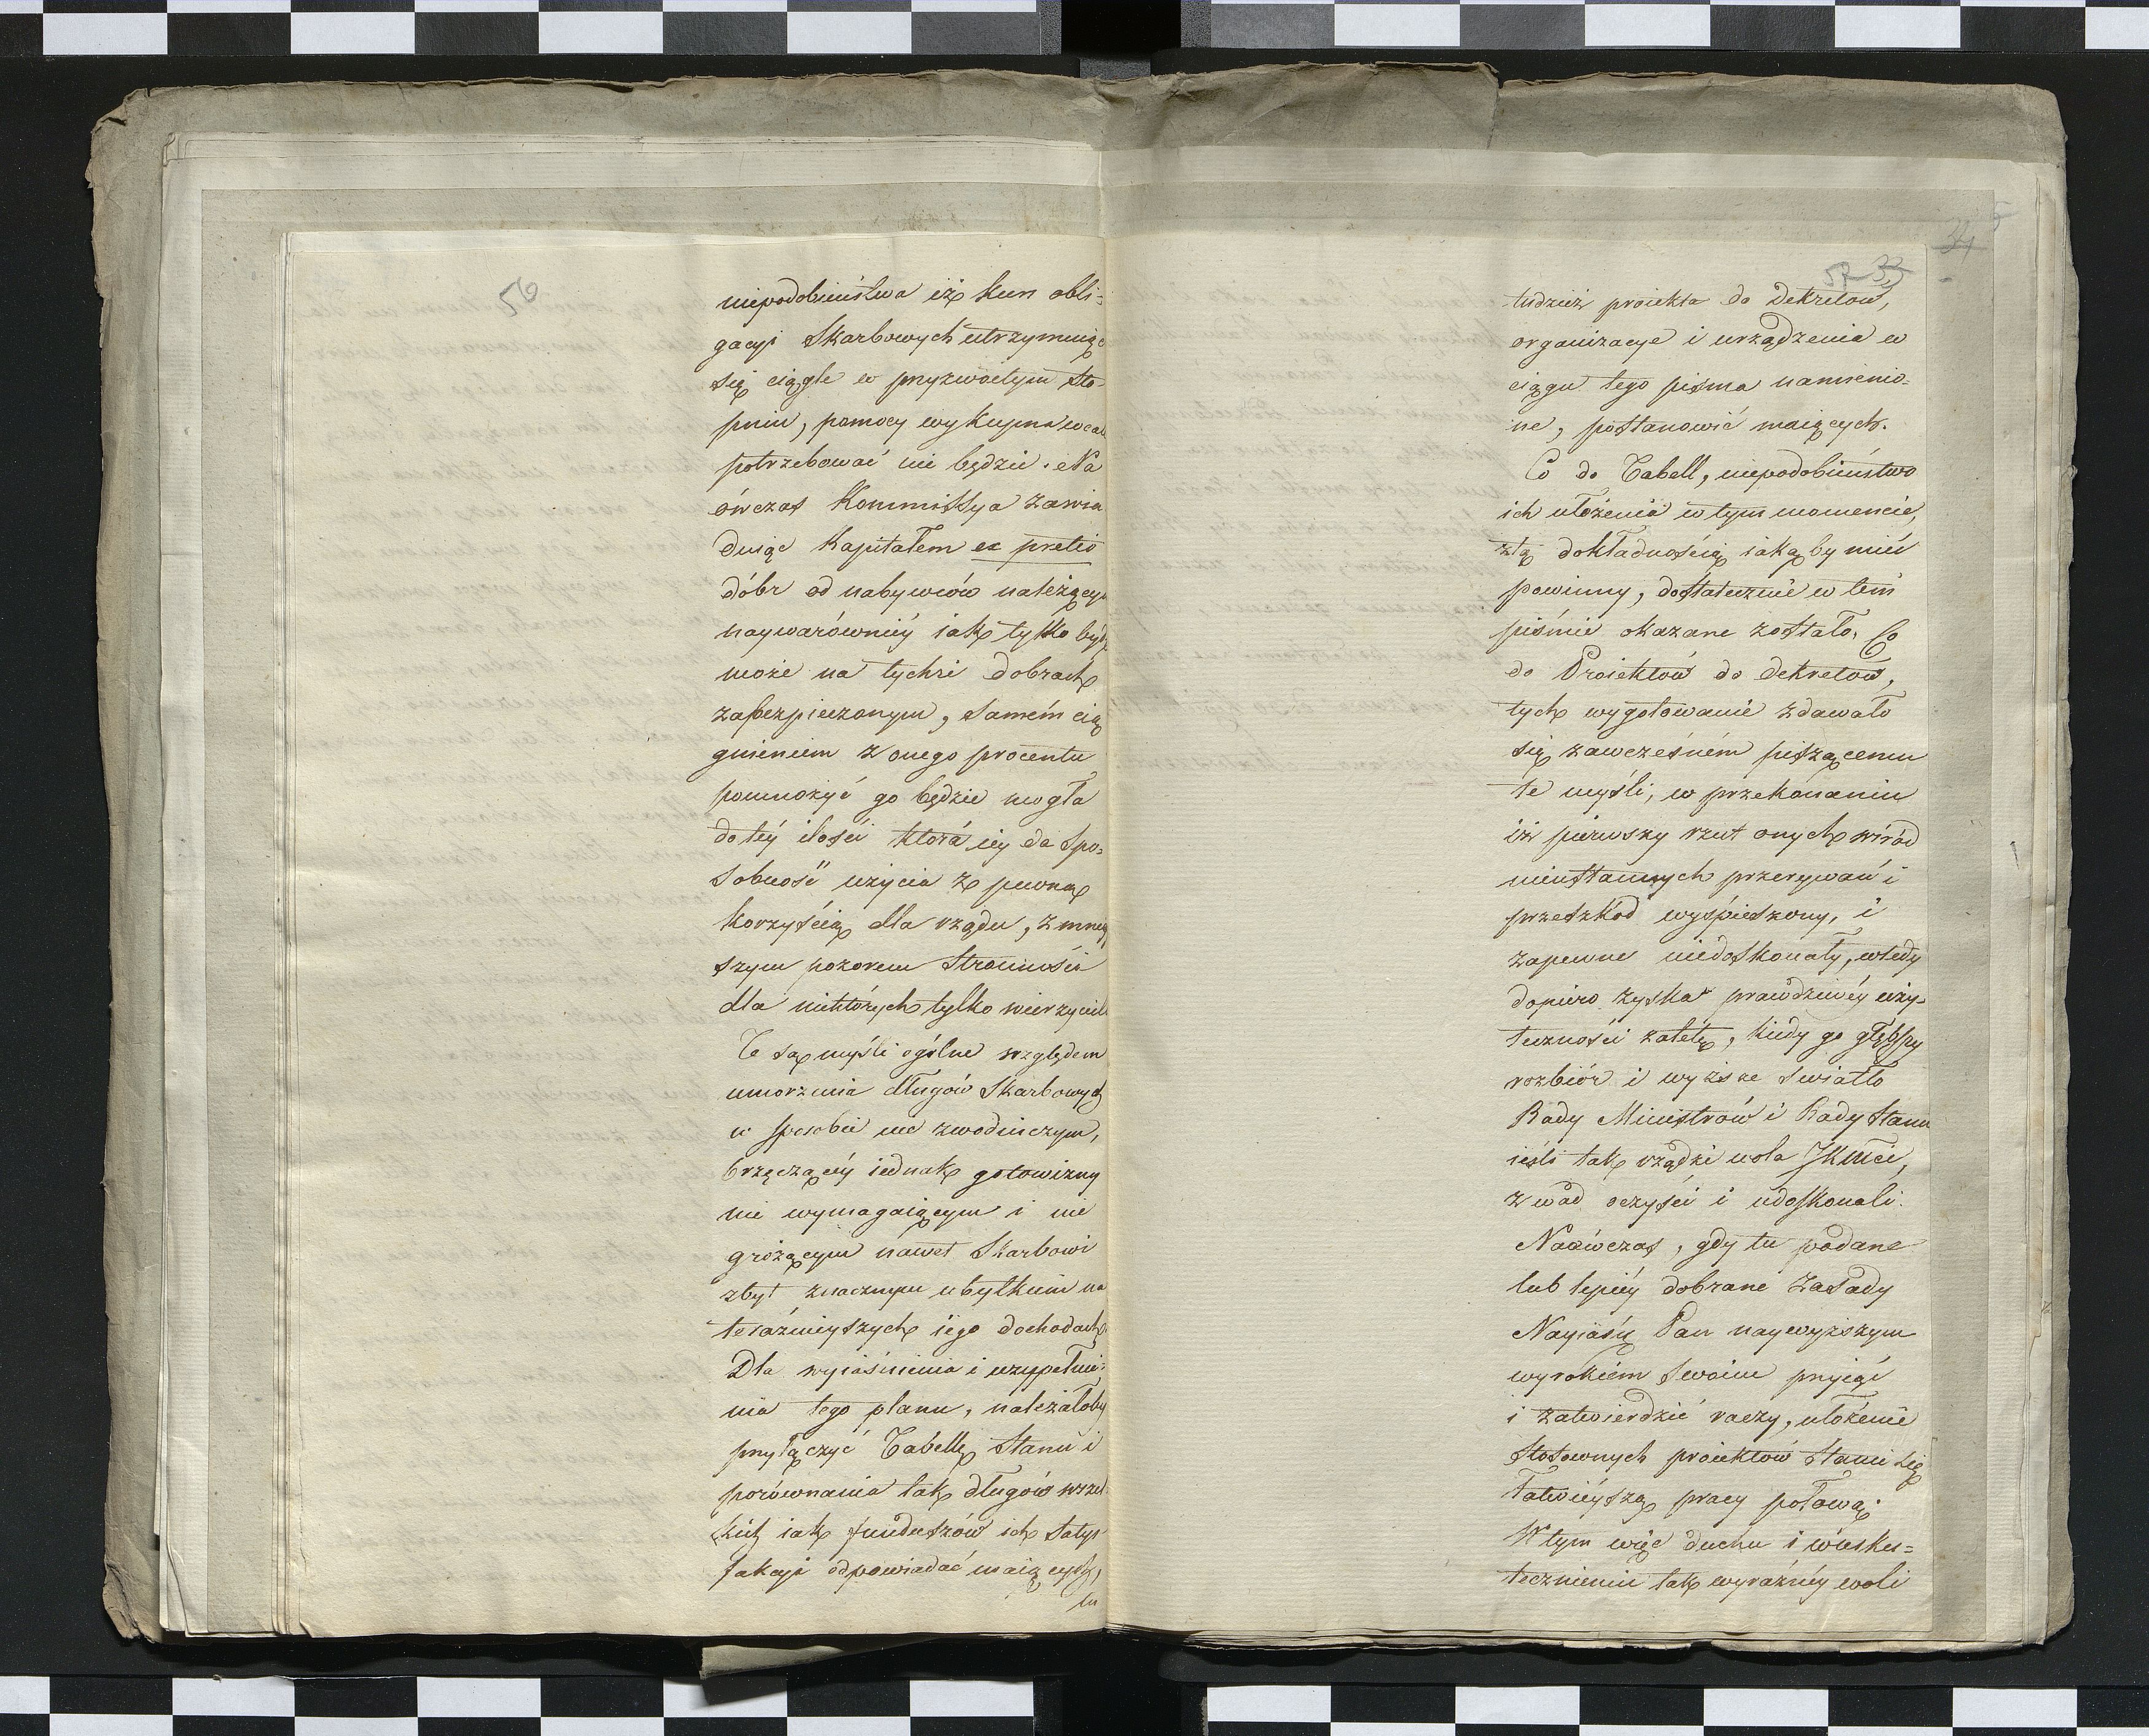 56
niepodobieństwa iż kurs obli=
gacyi Skarbowych utrzymuiąc
się ciągle w przyzwoitym sto-
pniu, pomocy wykupna wcale
potrzebować nie będzie. Na
ówczas Kommissya zawia
duiąc Kapitałem ex pretio
dóbr od nabywców należącym
naywarówniéy iak tylko bydź
może na tychże dobrach
zabezpieczonym, samém cią
gnieniem z onego procentu
pomnożyć go będzie mogła
do téy ilości która iey da spo=
sobność użycia z pewną
korzyścią dla rządu, z mniey
szym pozorem stronności
dla niektórych tylko wierzycieli
Te są myśli ogólne względem
umorzenia długów Skarbowych
w sposobie nie zwodniczym,
brzęczącéy iednak gotowizny
nie wymagaiącym i nie
grożącym nawet Skarbowi
zbyt znacznym ubytkiem na
teraźnieyszych iego dochodach.
Dla wyiaśnienia i uzupełnie=
nia tego planu, należałoby
przyłączyć Tabellę Stanu i
porównania tak długów wszel
kich iak funduszów ich satys
fakcyi odpowiadać maiących,
tu
34
57 33
tudzież proiekta do Dekretów,
organizacye i urządzenia w
ciągu tego pisma namienio=
ne, postanowić maiących.
Co do Tabell, niepodobieństwo
ich ułożenia w tym momencie,
z tą dokładnością iaką by mieć
powinny, dostatecznie w tem
piśmie okazane zostało. Co
do Proiektów do dekretów,
tych wygotowanie zdawało
się zawcześném piszącemu
te myśli, w przekonaniu
iż pierwszy rzut onych wśród
nieustannych przerywań i
przeszkód wyśpieszony, i
zapewne niedoskonały, wtedy
dopiéro zyska prawdziwéy uży=
teczności zaletę, kiedy go głębszy
rozbiór i wyższe światło
Rady Ministrów i Rady Stanu
ieśli tak rządzi wola JKMci,
z wad oczyści i udoskonali.
Naówczas, gdy tu podane
lub lepiéy dobrane zasady
Nayiaśn Pan naywyższym
wyrokiem swoim przyiąć
i zatwierdzić raczy, ułożenie
stosownych proiektów stanie się
łatwieyszą pracy połową.
W tym więc duchu i w usku=
tecznieniu tak wyraźnéy woli